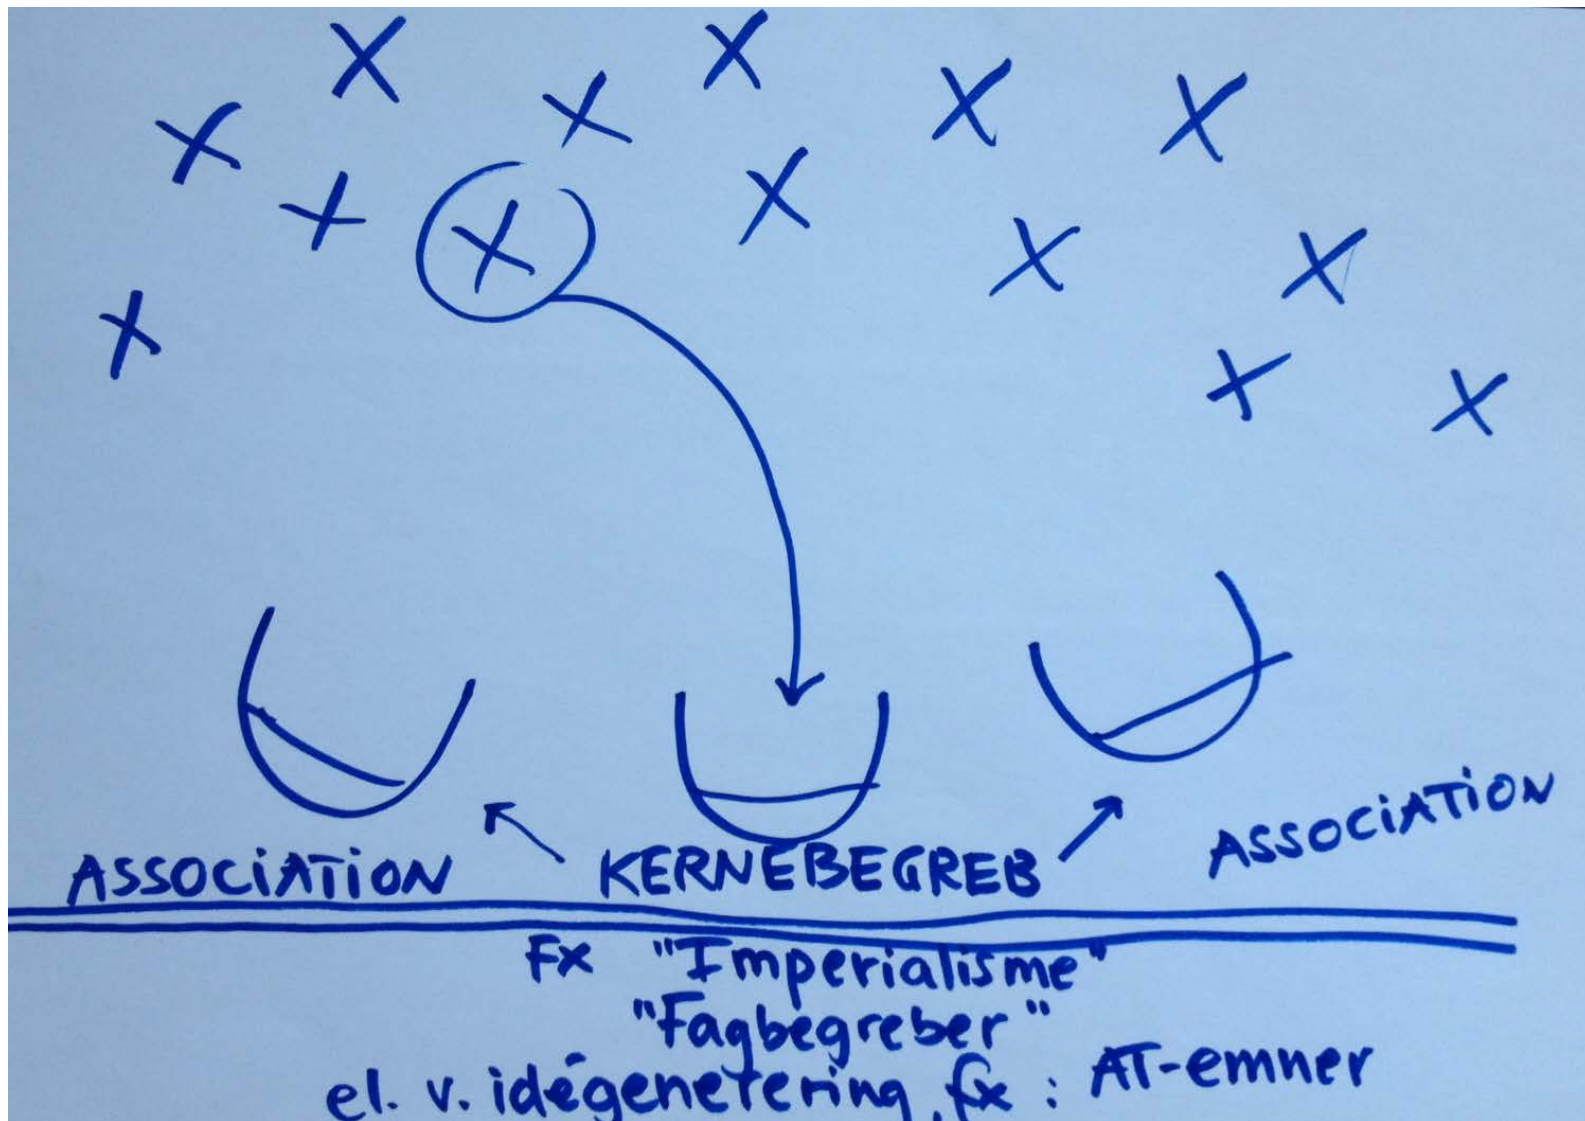 ASSOCiATiON KERNEBEGREB ASSOCiATiON
Fx "Imperialisme"
"Fagbegreber"
el. v. idégenetering, fx : AT-emner